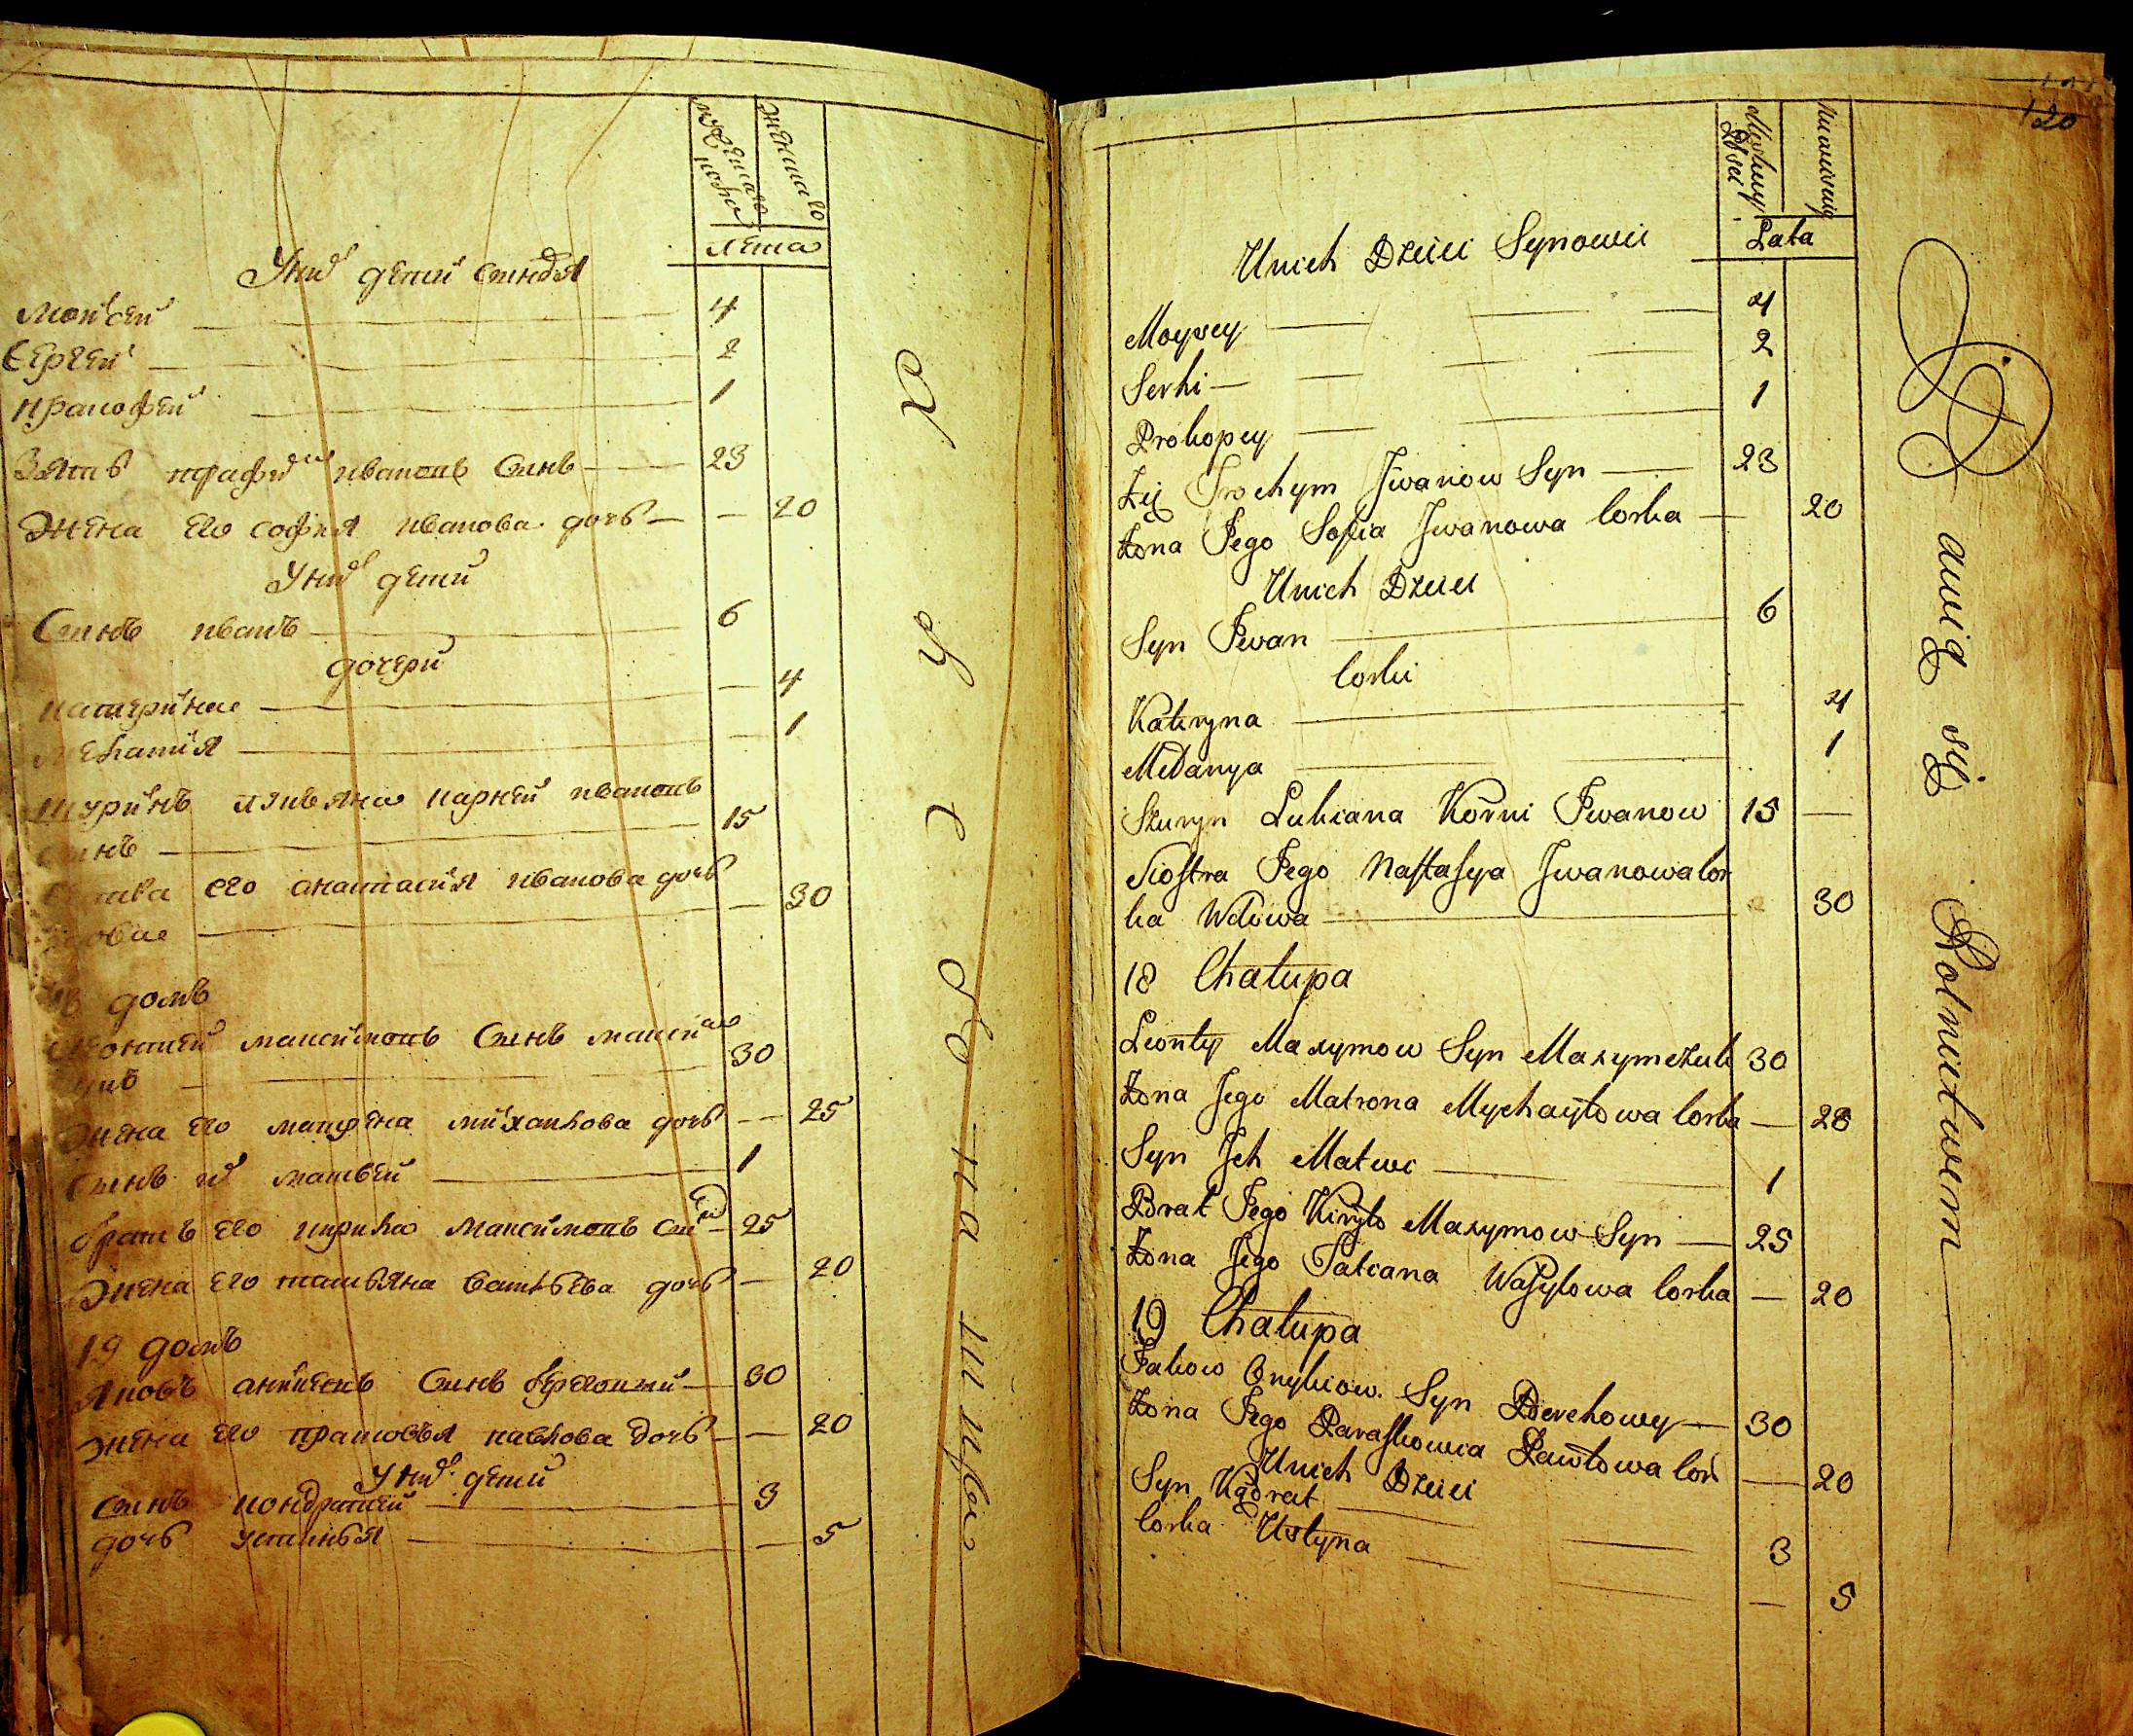 мужеска
пола
женска го
лета
У них дети сыновя
Моисей 4
Сергей 2
Пракофей 1
Зять трафим иванов Сын 23
Жена его софия иванова дочь — 20
У них дети
Сынъ иванъ 6
дочери
катерина — 4
Мелания — 1
Шуринъ лукьяна карней иванов
сынъ 15
Сестра его анастасия иванова дочь
вдова — 30
18 домъ
Леонтей максимовъ Сынъ максим
чукъ 30
Жена его матрена михаилова дочь — 25
Сынъ их матвей 1
братъ его кирила максимовъ сын 25
Жена его татьяна васильева дочь — 20
19 домъ
Яковъ аникиевъ Сынъ береговой 30
Жена его прасковья павлова дочь — 20
У них дети
сынъ кондратей 3
дочь устинья — 5
120
Męskiey
Płci
Lata
Unich Dzieci Synowie
Moysey 4
Serhi 2
Prokopey 1
Zię Trochym Jwanow Syn 23
Żona Jego Sofia Jwanowa Corka — 20
Unich Dzieci
Syn Jwan 6
Corki
Kateryna 4
Melanya 1
Szuryn Lukiana Korni Jwanow 15 —
Siostra Jego Nastasya Jwanowa Cor
ka Wdowa 30
18 Chałupa
Leonty Maxymow Syn Maxymczuk 30
Żona Jego Matrona Mychayłowa Corka — 28
Syn Jch Matwi 1
Brat Jego Kiryło Maxymow Syn — 25
Żona Jego Tatiana Wasylowa Corka — 20
19 Chałupa
Jakow Onykiow Syn Berehowy — 30
Żona Jego Paraskowia Pawłowa Cor — 20
Unich Dzieci
Syn Kądrat 3
Corka Ustyna — 5
Bawią się Rolnictwem